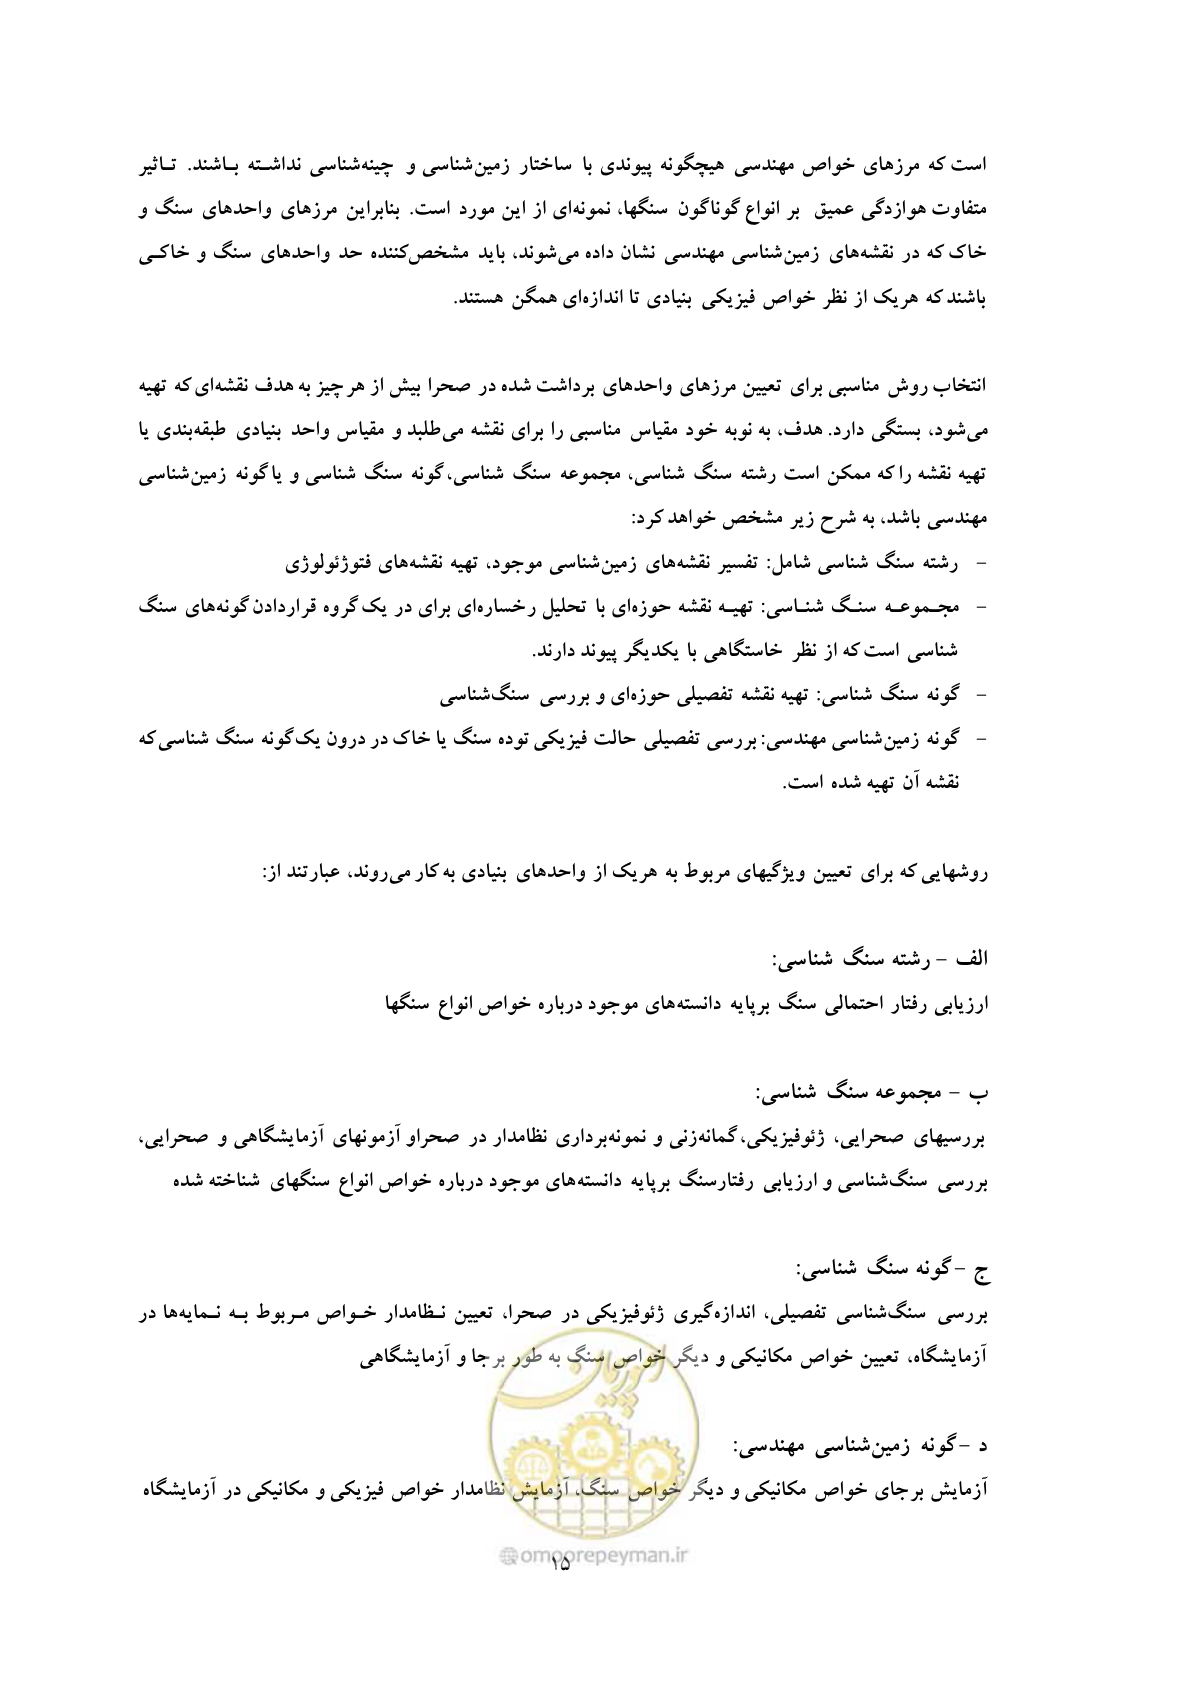 است که مرزهای خواص مهندسی هیچگونه پیوندی با ساختار زمین‌شناسی و چینه‌شناسی نداشـته بـاشند. تـاثیر
متفاوت هوازدگی عمیق بر انواع گوناگون سنگها، نمونه‌ای از این مورد است. بنابراین مرزهای واحدهای سنگ و
خاک که در نقشه‌های زمین‌شناسی مهندسی نشان داده می‌شوند، باید مشخص‌کننده حد واحدهای سنگ و خاکـی
باشند که هریک از نظر خواص فیزیکی بنیادی تا اندازه‌ای همگن هستند.
انتخاب روش مناسبی برای تعیین مرزهای واحدهای برداشت شده در صحرا بیش از هر چیز به هدف نقشه‌ای که تهیه
می‌شود، بستگی دارد. هدف، به نوبه خود مقیاس مناسبی را برای نقشه می‌طلبد و مقیاس واحد بنیادی طبقه‌بندی یا
تهیه نقشه را که ممکن است رشته سنگ شناسی، مجموعه سنگ شناسی،گونه سنگ شناسی و یا گونه زمین‌شناسی
مهندسی باشد، به شرح زیر مشخص خواهد کرد:
– رشته سنگ شناسی شامل: تفسیر نقشه‌های زمین‌شناسی موجود، تهیه نقشه‌های فتوژئولوژی
– مجـموعـه سنـگ شنـاسی: تهیـه نقشه حوزه‌ای با تحلیل رخساره‌ای برای در یک گروه قراردادن گونه‌های سنگ
شناسی است که از نظر خاستگاهی با یکدیگر پیوند دارند.
– گونه سنگ شناسی: تهیه نقشه تفصیلی حوزه‌ای و بررسی سنگ‌شناسی
– گونه زمین‌شناسی مهندسی: بررسی تفصیلی حالت فیزیکی توده سنگ یا خاک در درون یک گونه سنگ شناسی که
نقشه آن تهیه شده است.
روشهایی که برای تعیین ویژگیهای مربوط به هریک از واحدهای بنیادی به کار می‌روند، عبارتند از:
الف – رشته سنگ شناسی:
ارزیابی رفتار احتمالی سنگ برپایه دانسته‌های موجود درباره خواص انواع سنگها
ب – مجموعه سنگ شناسی:
بررسیهای صحرایی، ژئوفیزیکی،گمانه‌زنی و نمونه‌برداری نظامدار در صحراو آزمونهای آزمایشگاهی و صحرایی،
بررسی سنگ‌شناسی و ارزیابی رفتارسنگ برپایه دانسته‌های موجود درباره خواص انواع سنگهای شناخته شده
ج –گونه سنگ شناسی:
بررسی سنگ‌شناسی تفصیلی، اندازه‌گیری ژئوفیزیکی در صحرا، تعیین نـظامدار خـواص مـربوط بـه نـمایه‌ها در
آزمایشگاه، تعیین خواص مکانیکی و دیگر خواص سنگ به طور برجا و آزمایشگاهی
د –گونه زمین‌شناسی مهندسی:
آزمایش برجای خواص مکانیکی و دیگر خواص سنگ، آزمایش نظامدار خواص فیزیکی و مکانیکی در آزمایشگاه
امورپیمان
@omoorepeyman.ir
۱۵